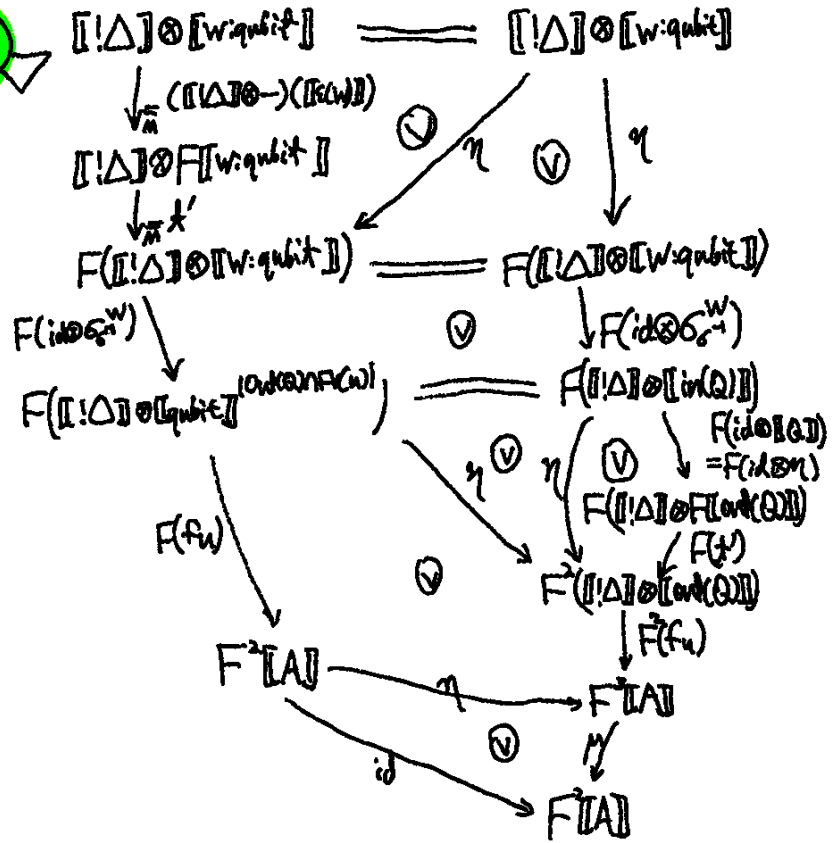 ⟦!Δ⟧⊗⟦W:qubit⟧ = ⟦!Δ⟧⊗⟦W:qubit⟧
↓ₘ̄ (⟦!Δ⟧⊗−)(⟦ε(W)⟧) Ⓥ η Ⓥ η
⟦!Δ⟧⊗F⟦W:qubit⟧
↓ₘ̄ t'
F(⟦!Δ⟧⊗⟦W:qubit⟧) = F(⟦!Δ⟧⊗⟦W:qubit⟧)
F(id⊗σ^W_σ⁻¹) Ⓥ F(id⊗σ^W_σ⁻¹)
F(⟦!Δ⟧⊗⟦qubit⟧^|Out(Q)∩FV(u)|) = F(⟦!Δ⟧⊗⟦in(Q)⟧)
η Ⓥ η Ⓥ F(id⊗⟦Q⟧)
=F(id⊗η)
F(⟦!Δ⟧⊗F⟦out(Q)⟧)
F(fᵤ) F(t')
Ⓥ F²(⟦!Δ⟧⊗⟦out(Q)⟧)
F²(fᵤ)
F²⟦A⟧ η F³⟦A⟧
id Ⓥ μ
F²⟦A⟧